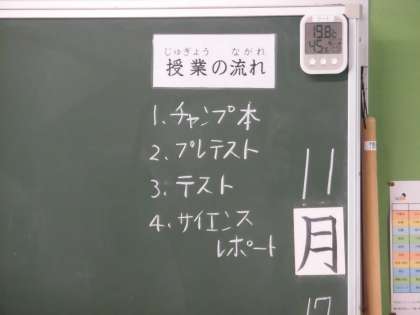 じゅぎょう ながれ
授業の流れ
1. チャンプ本
2. プレテスト
3. テスト
4. サイエンス
レポート
11
月
17
19.8
45